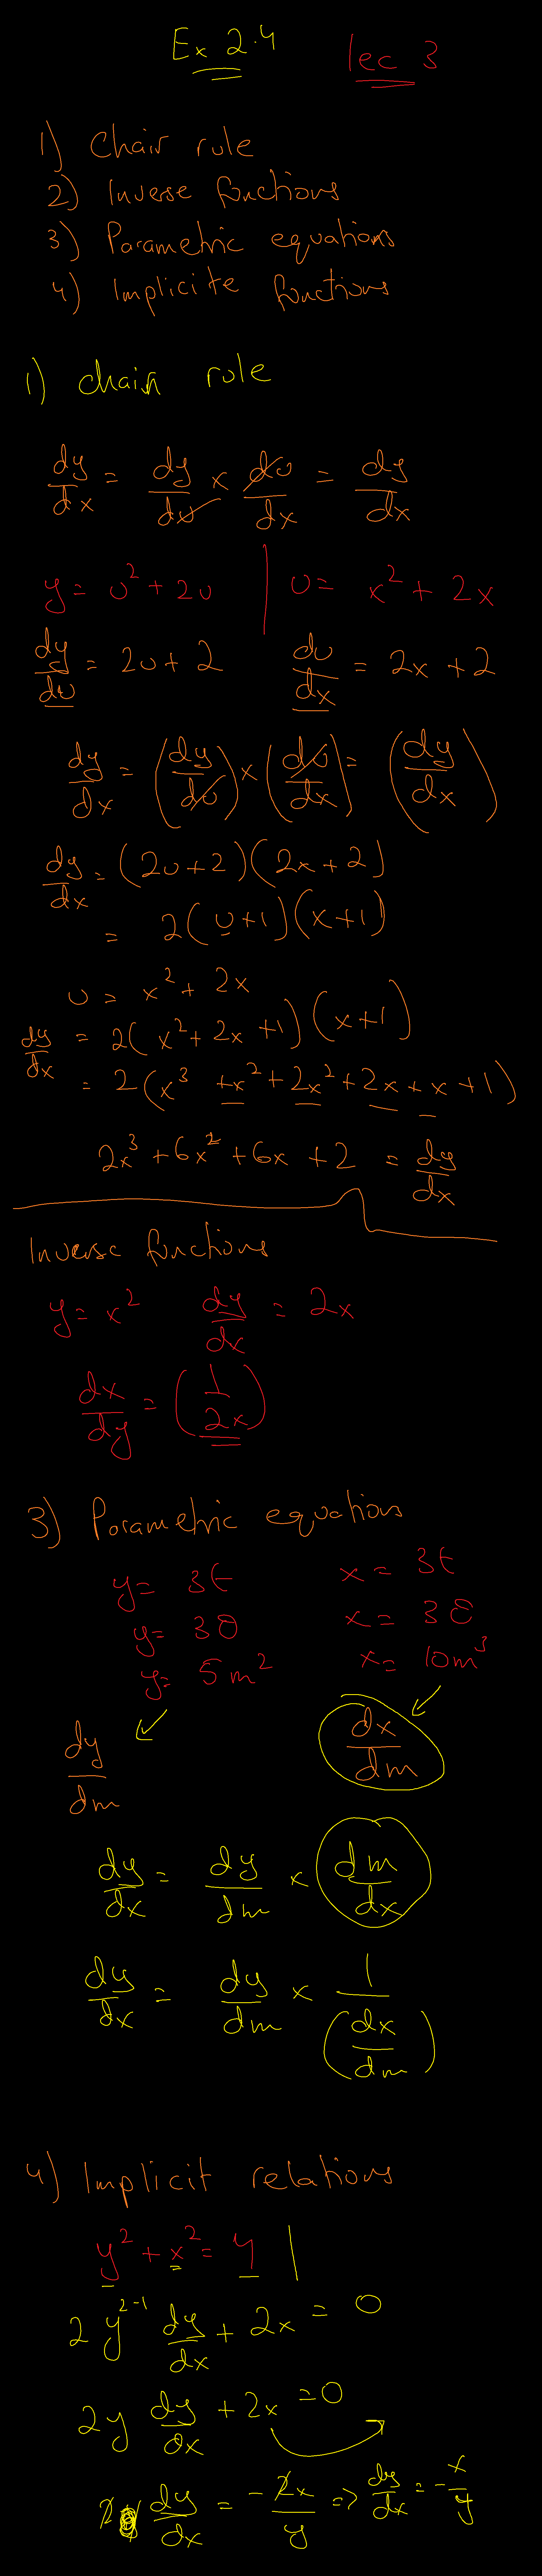 Ex 2.4 lec 3
1) Chair rule
2) Inverse functions
3) Parametric equations
4) Implicite functions
1) chain rule
dy/dx = dy/du × du/dx = dy/dx
y = u² + 2u | u = x² + 2x
dy/du = 2u + 2 du/dx = 2x + 2
dy/dx = (dy/du) × (du/dx) = (dy/dx)
dy/dx = (2u+2)(2x+2)
= 2(u+1)(x+1)
u = x² + 2x
dy/dx = 2(x² + 2x + 1)(x+1)
= 2(x³ + x² + 2x² + 2x + x + 1)
2x³ + 6x² + 6x + 2 = dy/dx
Inverse functions
y = x² dy/dx = 2x
dx/dy = (1/2x)
3) Parametric equations
y = 3t x = 3t
y = 3θ x = 3θ
y = 5m² x = 10m³
dy/dm dx/dm
dy/dx = dy/dm × dm/dx
dy/dx = dy/dm × 1/(dx/dm)
4) Implicit relations
y² + x² = 4 |
2y²⁻¹ dy/dx + 2x = 0
2y dy/dx + 2x = 0
2 dy/dx = -2x/y => dy/dx = -x/y